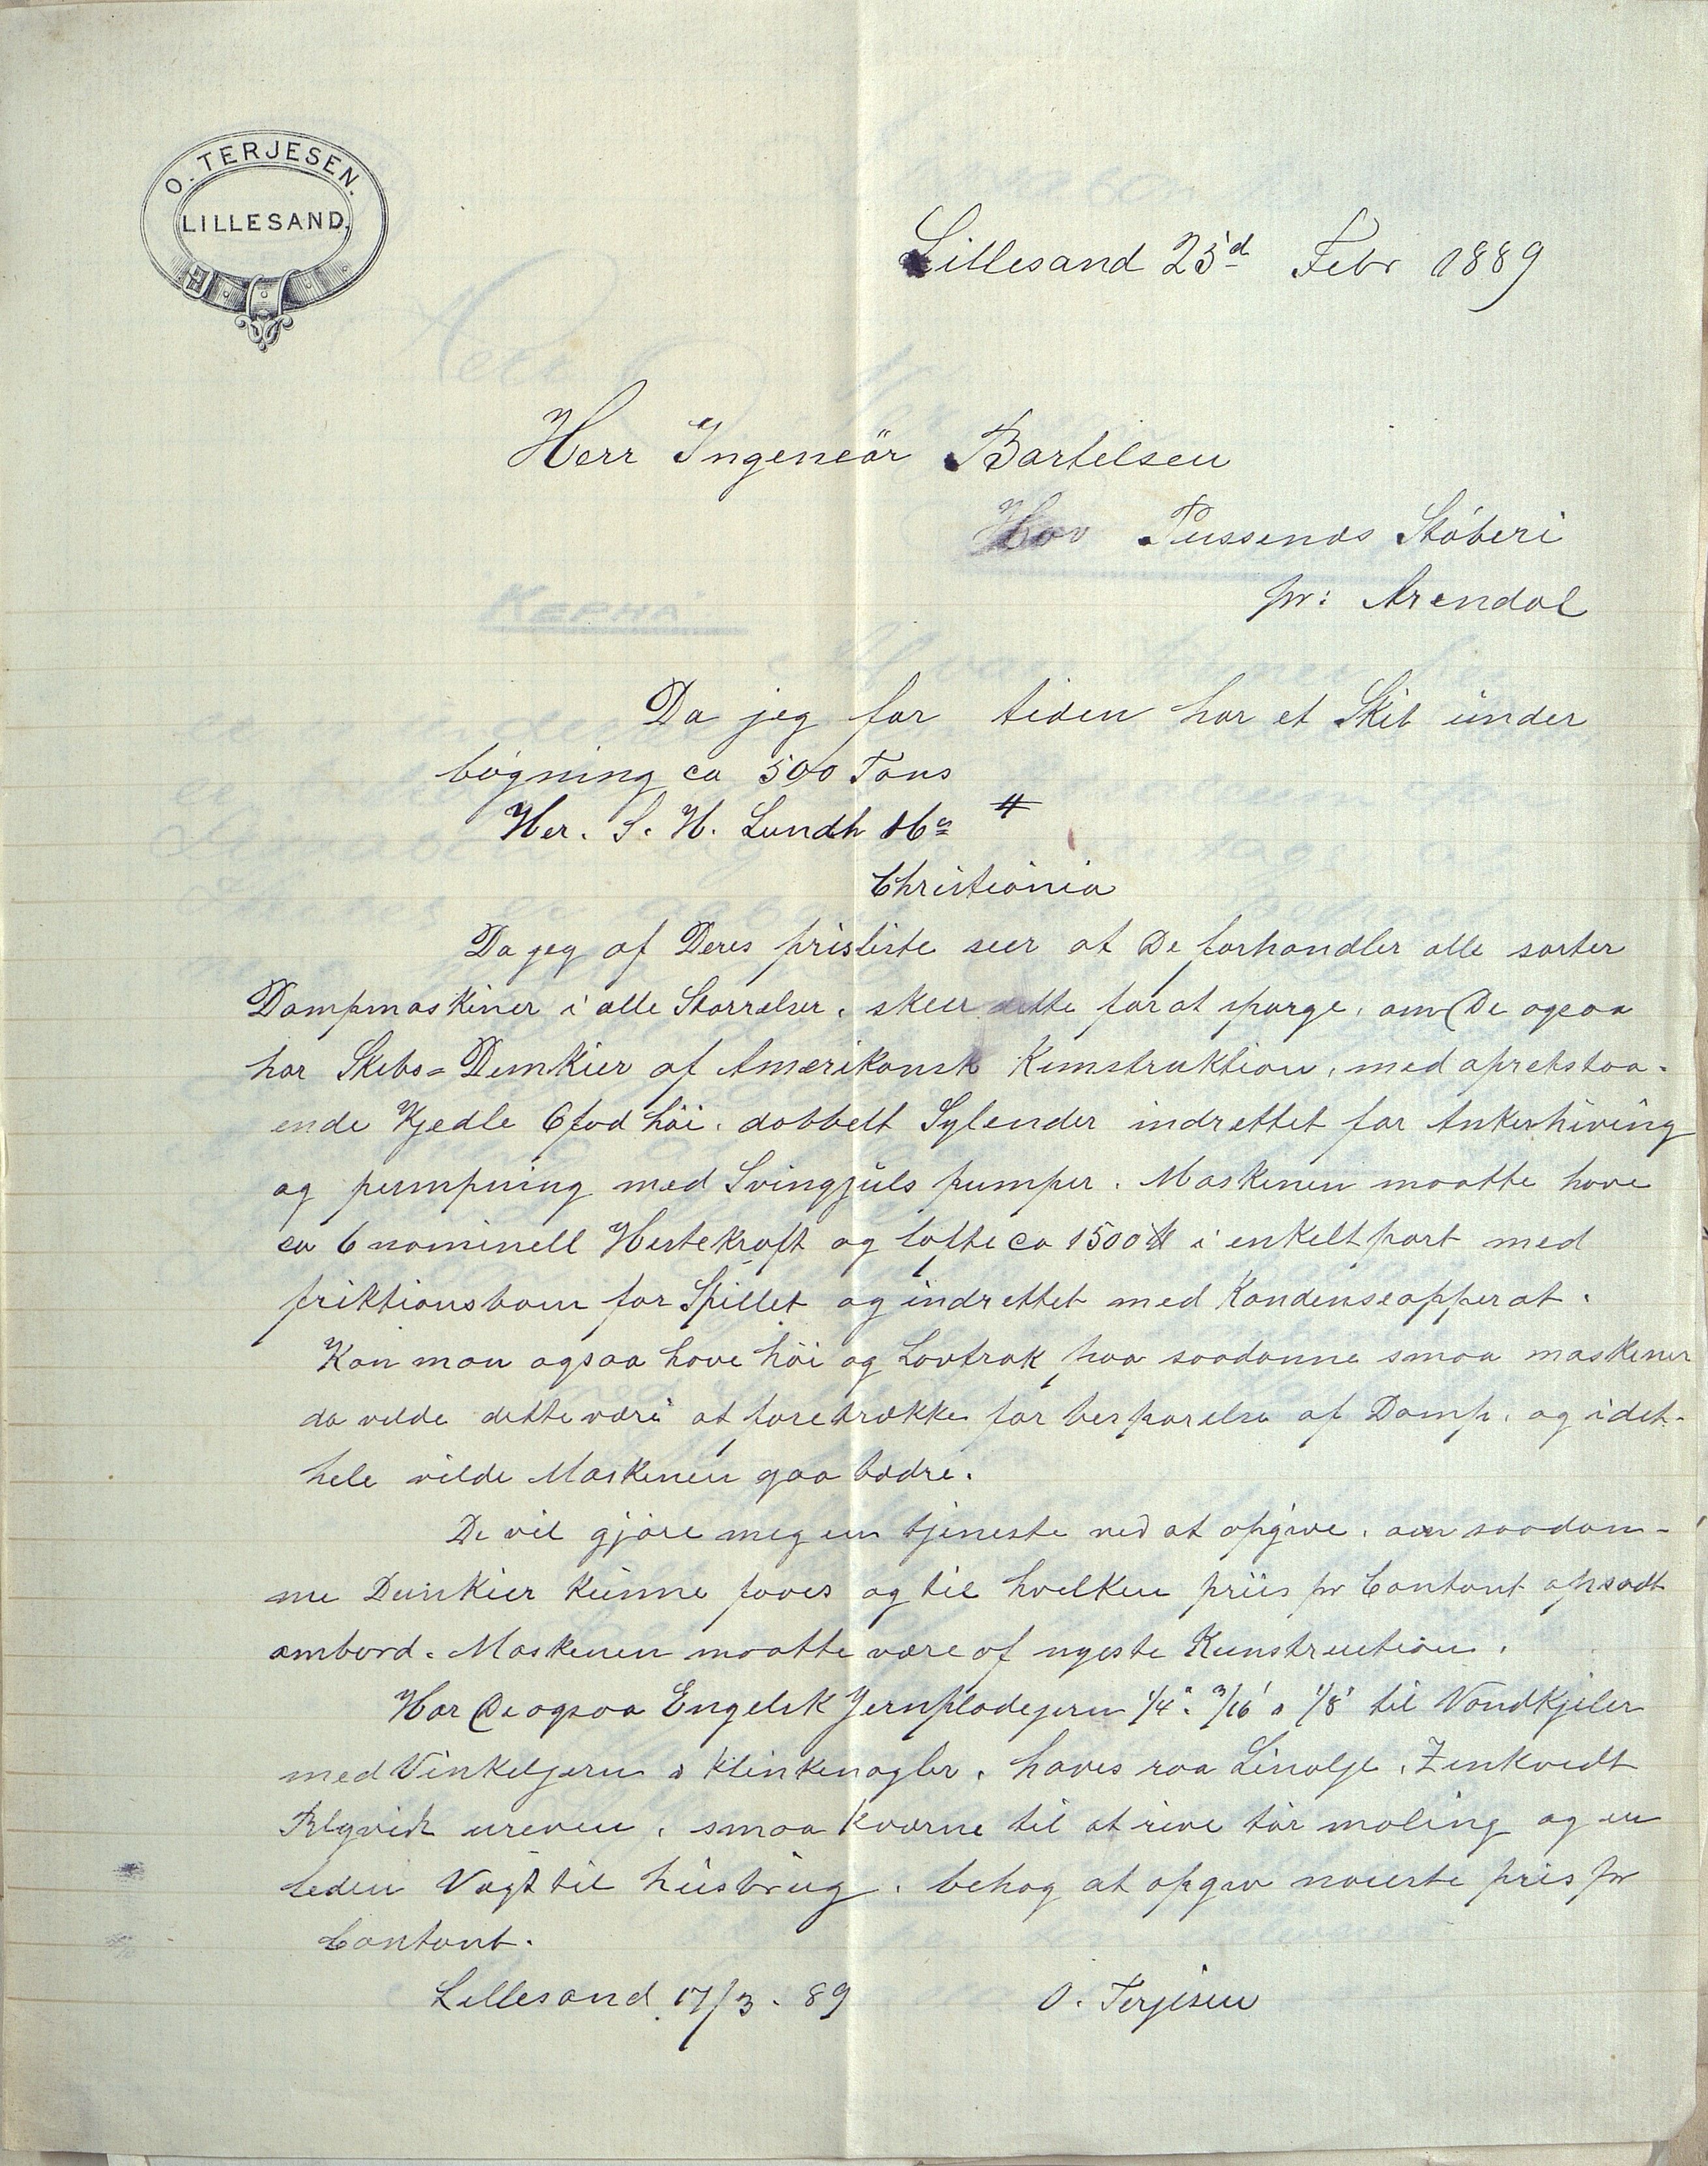 O. TERJESEN.
LILLESAND.
Lillesand 25d Febr 1889
Herr Ingeneör Bartelsen
Pussends Stöberi
pr: Arendal
Da jeg for tiden har et Skib under
bögning ca 500 Tons
Her. S. H. Lundh #
Christiania
Da jeg af Deres prisliste seer at De forhandler alle sorter
Dampmaskiner i alle Storrelser, skeer dette for at sporge, om De ogsaa
har Skibs=Dunkier af Amerikansk Kunstruktion, med opretstaa-
ende Kjedle 6 fod höi, dobbelt Sylender indrettet for Ankerhiving
og pumpning med Svingjuls pumper. Maskinen maatte have
ca 6 nominell Hestekraft og lofte ca 1500 i enkelt part med
friktionsbom for Spillet og indrettet med Kondenseapperat.
Kan man ogsaa have höi og Lovtrak paa saadanne smaa maskiner
da vilde dette være at foretrække for besparelse af Damp, og idet-
hele vilde Maskinen gaa bedre.
De vil gjöre meg en tjeneste ved at opgive, om saadan-
ne Dunkier kunne faaes og til hvilken priis pr Contant opsadt
ombord. Maskinen maatte være af nyeste Kunstruction.
Har De ogsaa Engelsk Jernpladejern 1/4" 3/16' a 1/8' til Vandkjeler
med Vinkeljern & Klinknagler, haves raa Linolje, Zinkvidt
Blyvidt ureven, smaa Kværne til at rive tör maling og en
liden Vægt til husbrug, behag at opgive nöieste pris pr
Contant.
Lillesand 17/3. 89 O. Terjesen